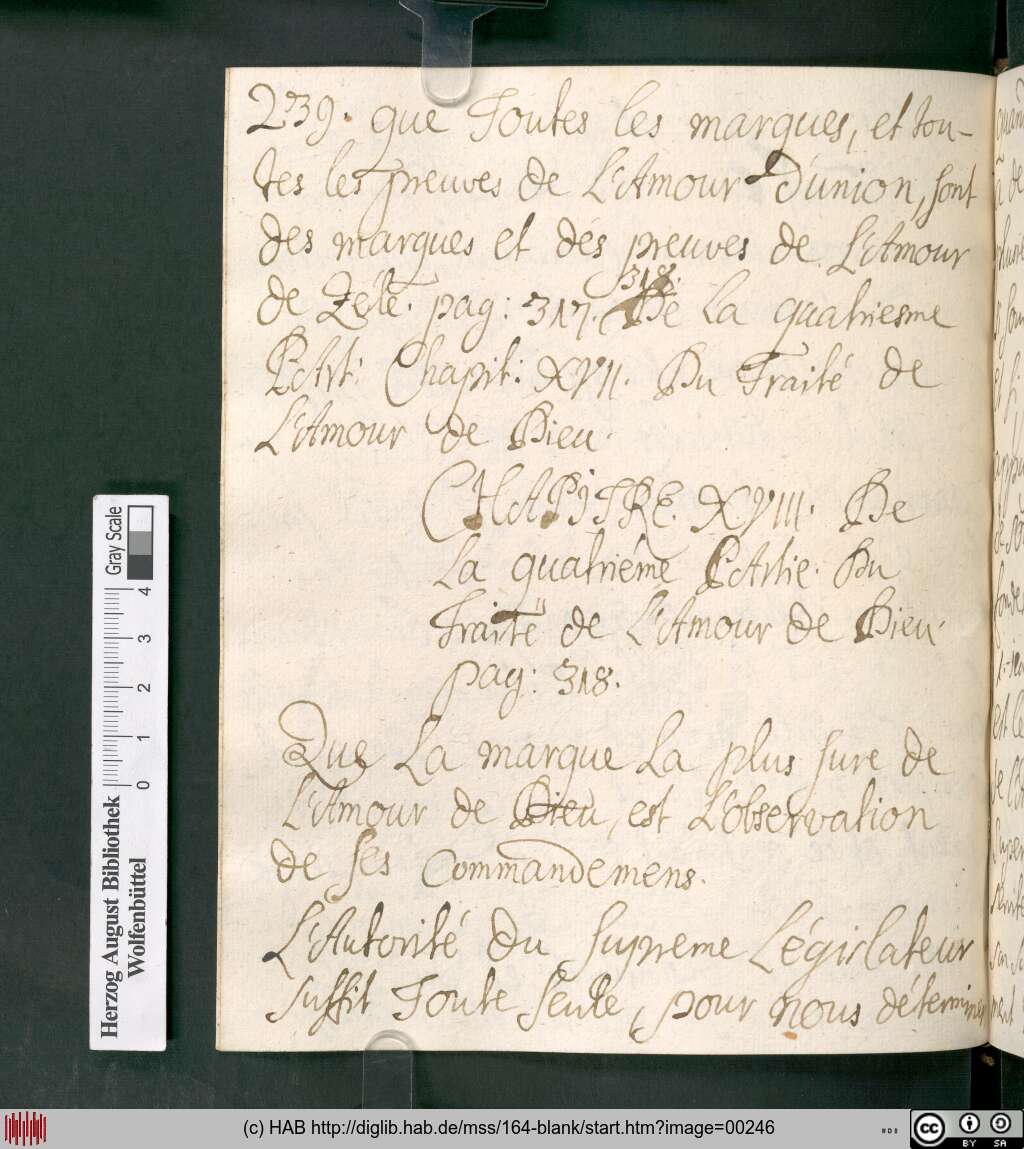 239. que Toutes les marques, et tou-
tes les preuves de L'Amour D'union, sont
des marques et dés preuves de L'Amour
318.
de Zéle. pag: 317. De La quatriesme
PArt: Chapit: XVII. Du Traité de
L'Amour de Dieu.
CHAPITRE XVIII. De
La quatriéme PArtie. Du
Traité de L'Amour de Dieu.
pag: 318.
Que La marque La plus sure de
L'Amour de Dieu, est L'observation
de ses Commandemens.
L'Autorité Du supreme Législateur
suffit Toute seule, pour nous déterminer
Gray Scale
4
3
2
1
0
Herzog August Bibliothek
Wolfenbüttel
(c) HAB http://diglib.hab.de/mss/164-blank/start.htm?image=00246
cc BY SA